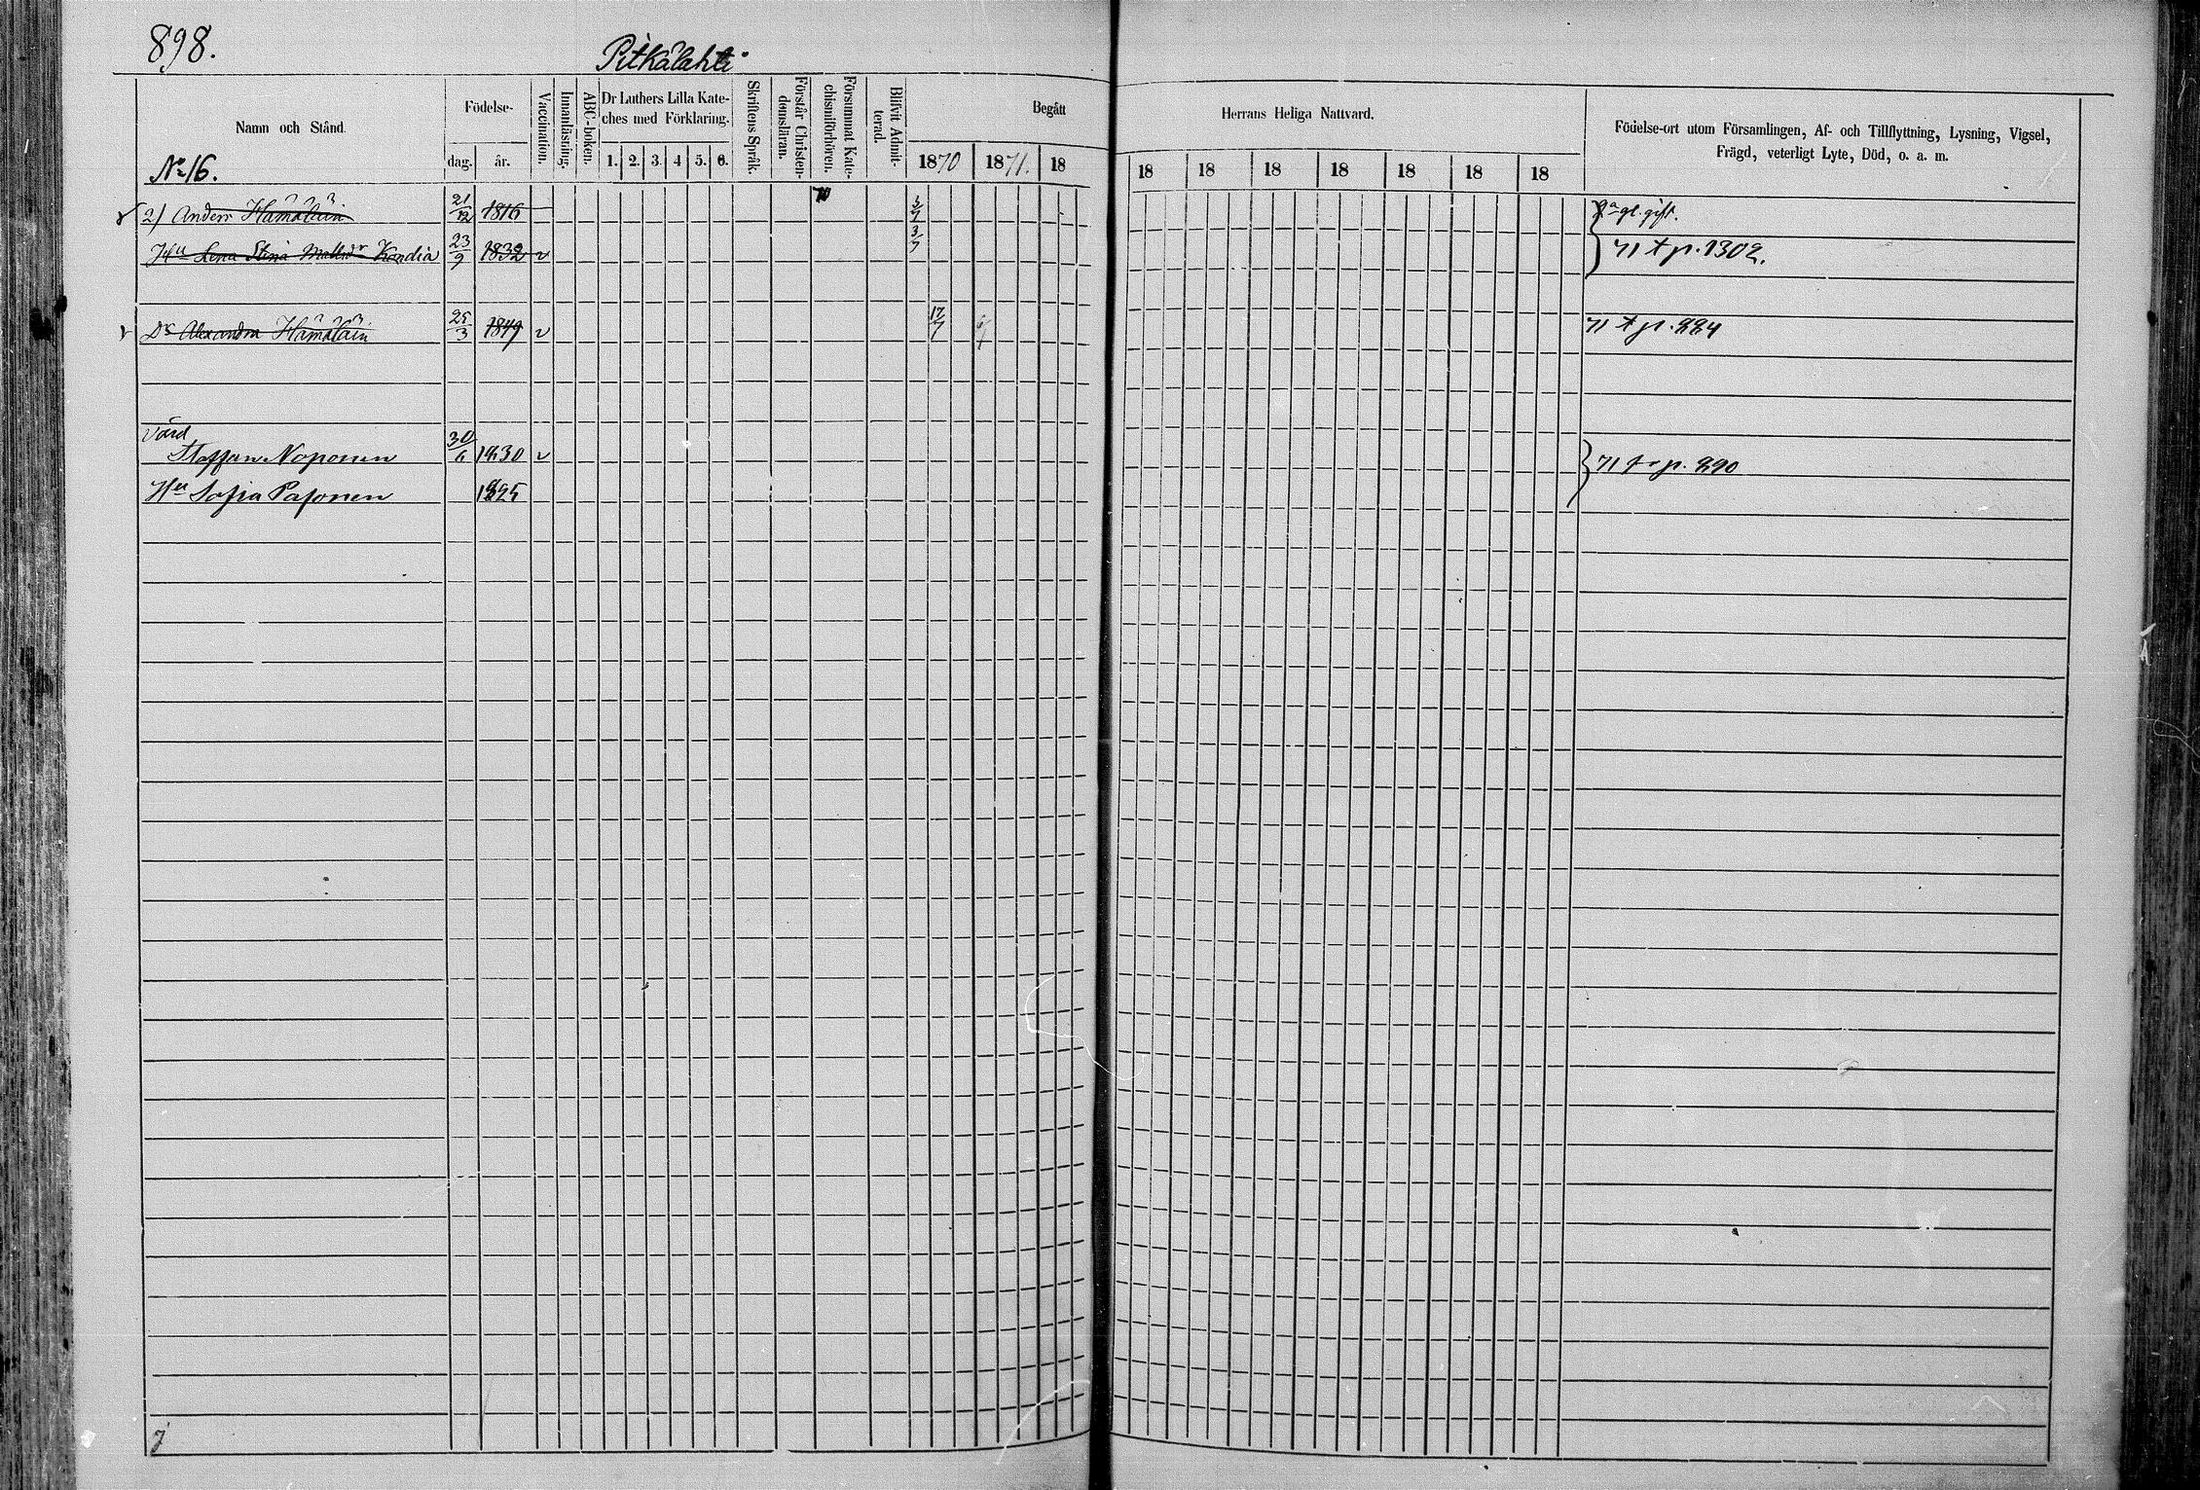 898.
Pitkälahti
Namn och Stånd.
Födelse-
dag.
år.
Vaccination.
Innanläsning.
ABC-boken.
Dr Luthers Lilla Kate-
ches med Förklaring.
1. 2. 3. 4 5. 6.
Skriftens Språk.
Förstår Christen-
domsläran.
Försummat Kate-
chismiförhören.
Blifvit Admit-
terad.
Begått
1870 1871. 18
Herrans Heliga Nattvard.
18 18 18 18 18 18 18
Födelse-ort utom Församlingen, Af- och Tillflyttning, Lysning, Vigsel,
Frägd, veterligt Lyte, Död, o. a. m.
No 16.
2) Anders Hämäläin 21/12 1816 3/7 2a gl. gift.
Hu Lena Stina Mattsdr Kandia 23/9 1832 v 3/7 71 t p. 1302.
Dr Alexandra Hämäläin 25/3 1849 v 17/7 71 t p. 884
Värd
Staffan Noponen 30/6 1830 v 71 fr p. 890
Hu Sofia Pasonen 1825